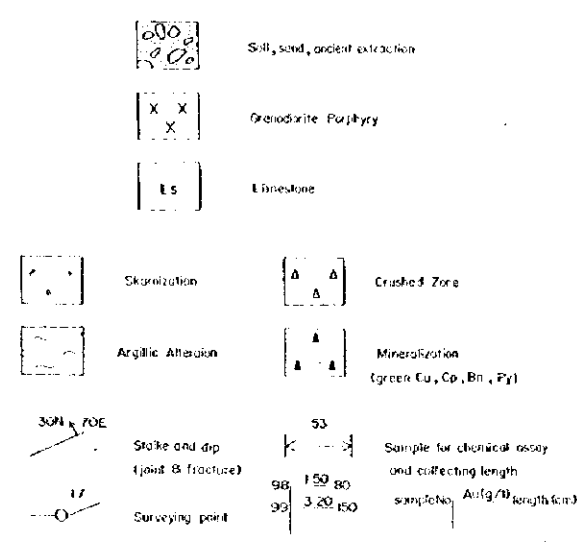 Soil, sand, ancient extraction
X X
X
Granodiorite Porphyry
Ls
Limestone
Skarnization
Crushed Zone
Argillic Alteraion
Mineralization
(green Cu, Cp, Bn, Py)
30N 70E
Stoike and dip
(joint & fracture)
53
Sample for chemical assay
and collecting length
17
Surveying point
98 1.50 80
99 3.20 150
sampleNo Au(g/t) length(cm)